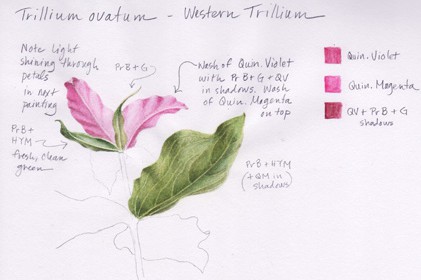 Trillium ovatum - Western Trillium
Note light
shining through
petals
in next
painting
PrB+G
Wash of Quin. Violet
with PrB+G+QV
in shadows. Wash
of Quin. Magenta
on top
Quin. Violet
Quin. Magenta
QV + PrB + G
shadows
PrB +
HYM
fresh, clean
green
PrB + HYM
(+QM in
shadows)